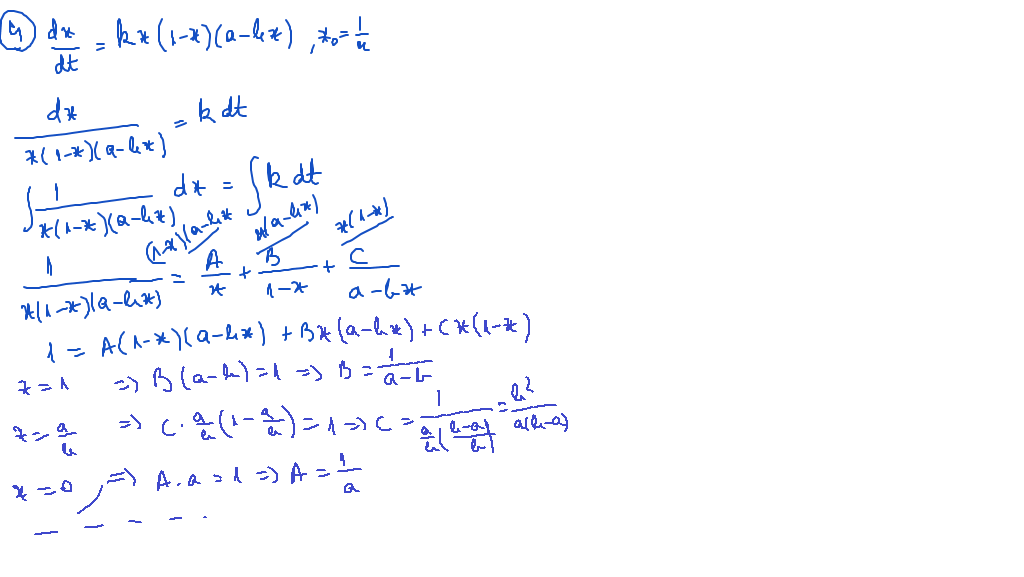 4) dx/dt = kx(1-x)(a-bx) , x₀=1/n
dx / x(1-x)(a-bx) = k dt
∫ 1 / x(1-x)(a-bx) dx = ∫ k dt
(1-x)(a-bx x(a-bx) x(1-x)
1 / x(1-x)(a-bx) = A/x + B/1-x + C/a-bx
1 = A(1-x)(a-bx) + Bx(a-bx) + Cx(1-x)
x=1 => B(a-b)=1 => B = 1/a-b
x=a/b => C·a/b(1-a/b)=1 => C = 1 / a/b((b-a)/b) = b²/a(b-a)
x=0 => A.a=1 => A = 1/a
— — — — .